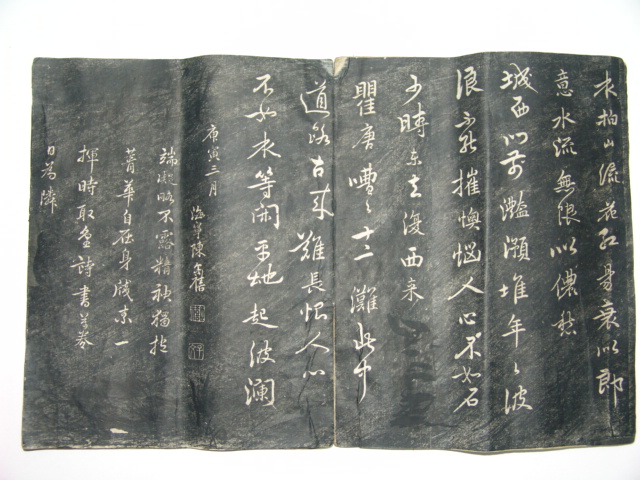 水拍山流花紅易衰似郎
意水流無限似儂愁
城西門前灩澦堆年々波
浪不能摧懊惱人心不如石
少時東去復西來
瞿唐嘈々十二灘此中
道路古來難長恨人心
不如水等閒平地起波瀾
庚寅三月
海寧陳奕禧
端凝略不露精神獨抱
菁華自在身
揮時取 詩書萬卷
日為鄰